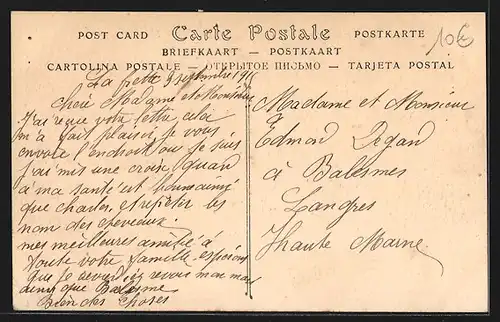 POST CARD Carte Postale POSTKARTE
BRIEFKAART — POSTKAART
CARTOLINA POSTALE — ОТКРЫТОЕ ПИСЬМО — TARJETA POSTAL
10€
La 9 septembre 191
Madame et Monsieur
J'ai reçue votre lettre cela
m'a fait plaisir je vous
envoie l'endroit ou je suis
j'ai mis une croix, quand
à ma santé est bonne ainsi
que Charles, et les
nom des cheveaux.
mes meilleures amitié à
toute votre famille espérons
que je revoir
ainsi que Balesme
Bien des choses
Madame et Monsieur
Edmond
à Balesmes
Langres
Haute Marne